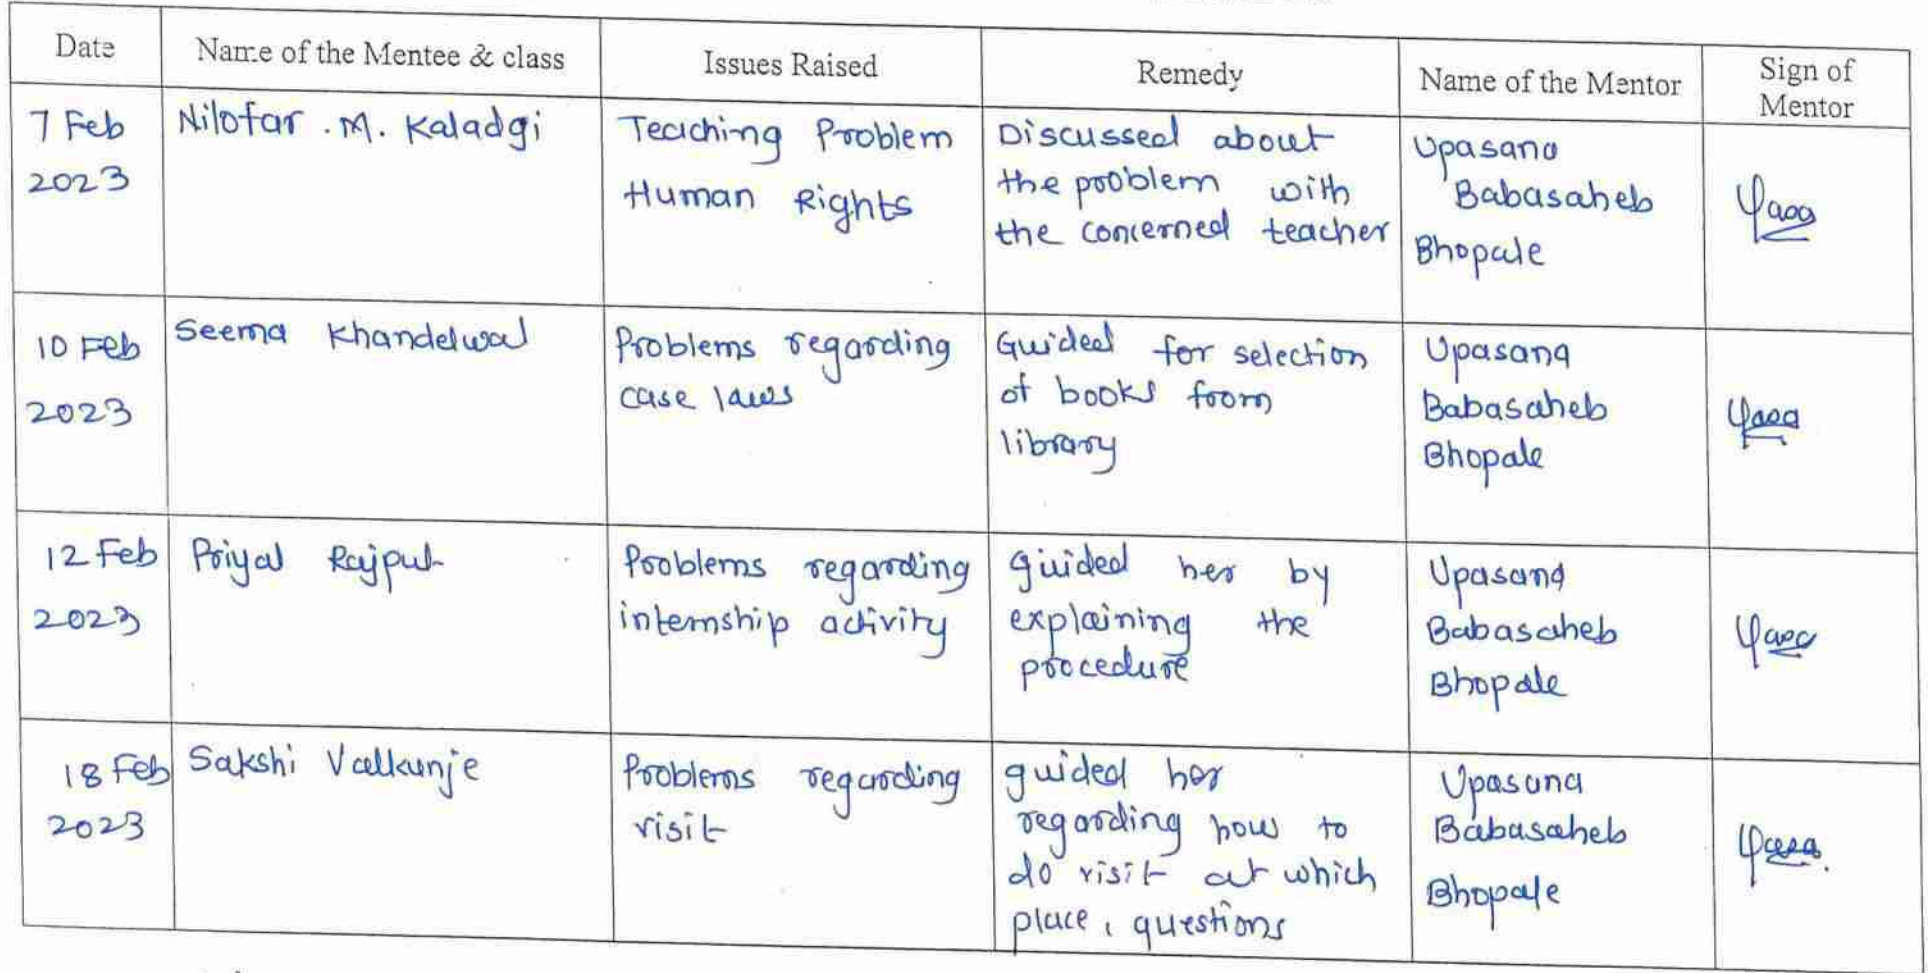 Date
Name of the Mentee & class
Issues Raised
Remedy
Name of the Mentor
Sign of
Mentor
7 Feb
2023
Nilofar . M. Kaladgi
Teaching Problem
Human Rights
Discussed about
the problem with
the concerned teacher
Upasana
Babasaheb
Bhopale
10 Feb
2023
Seema Khandelwal
Problems regarding
case laws
Guided for selection
of books from
library
Upasana
Babasaheb
Bhopale
12 Feb
2023
Priyal Rajput
Problems regarding
internship activity
guided her by
explaining the
procedure
Upasana
Babasaheb
Bhopale
18 Feb
2023
Sakshi Valkunje
Problems regarding
visit
guided her
regarding how to
do visit at which
place, questions
Upasana
Babasaheb
Bhopale